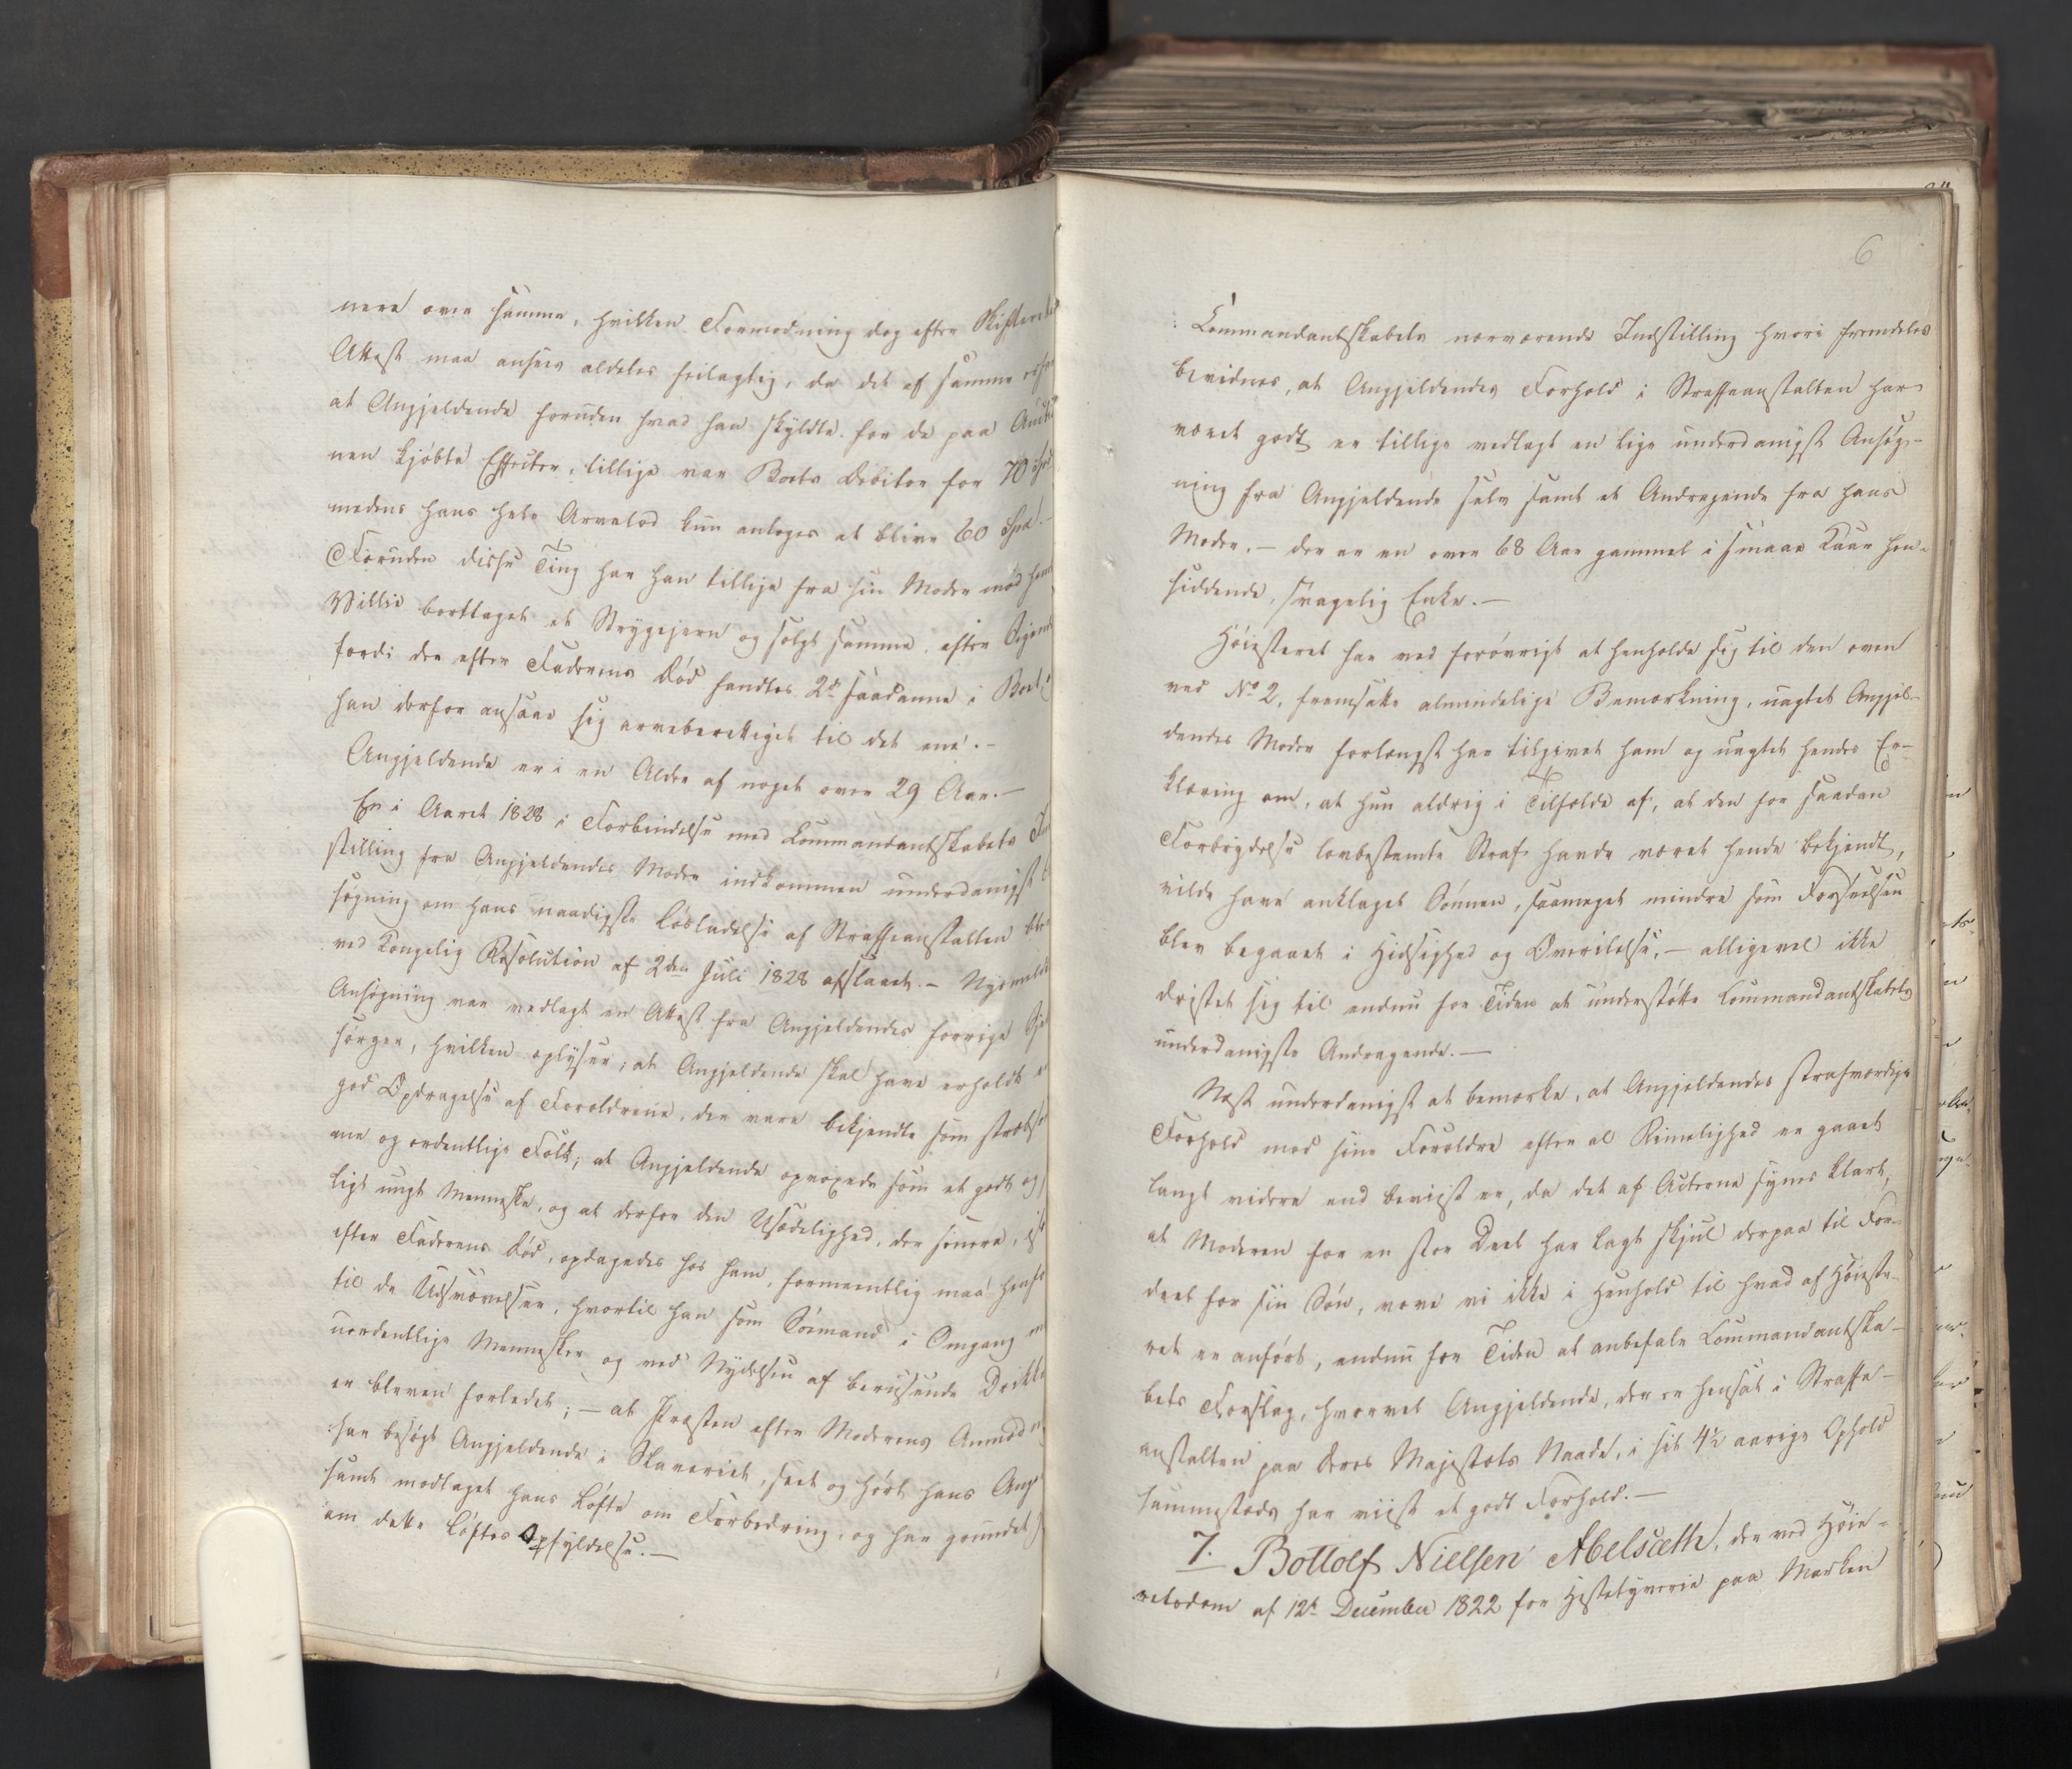 nere over samme, hvilken Formodning dog efter Skifterettens
Attest maa ansees aldeles feilagtig, da det af samme erfares
at Angjeldende foruden hvad han skyldte for de paa Auctio
nen kjøbte Effecter, tillige var Boets Debitor for 70 Spd
medens hans hele Arvelod kun antoges at blive 60 Spd.–
Foruden disse Ting har han tillige fra sin Moder mod hendes
Villie borttaget et Strygejern og solgt samme, efter
fordi der efter Faderens Død fandtes 2de saadanne i Boet,
han derfor ansaae sig arveberettiget til det ene.–
Angjeldende er i en Alder af noget over 29 Aar.–
En i Aaret 1828 i Forbindelse med Commandantskabets
stilling fra Angjeldendes Moder indkommen underdanigst
søgning om hans naadigste Løsladelse af Straffeanstalten blev
ved Kongelig Resolution af 2den Juli 1828 afslaaet.– Nysmeldte
Ansøgning var vedlagt en Attest fra Angjeldendes forrige
sørger, hvilken oplyser; at Angjeldende skal have erholdt
god Opdragelse af Forældrene, der vare bekjendte som
me og ordentlige Folk; at Angjeldende opvoxede som et godt og
ligt ungt Menneske, og at derfor den Usædelighed, der senere,
efter Faderens Død, opdagedes hos ham, formeentlig maa
til de Udsvævelser, hvortil han som Sømand i Omgang
uordentlige Mennesker og ved Nydelsen af berusende Drikke
er bleven forledet; – at Præsten efter Moderens Anmodn
har besøgt Angjeldende i Slaveriet, seet og hørt hans Ang
samt modtaget hans Løfte om Forbedring, og har grundet
om dette Løftes Opfyldelse.–
6
Commandantskabets nærværende Indstilling hvori fremdeles
bevidnes, at Angjeldendes Forhold i Straffeanstalten har
været godt er tillige vedlagt en lige underdanigst Ansøg-
ning fra Angjeldende selv samt et Andragende fra hans
Moder,– der er en over 68 Aar gammel i smaae Kaar hen-
siddende, svagelig Enke.–
Høiesteret har ved forøvrigt at henholde sig til den oven
ved No 2, fremsatte almindelige Bemærkning, uagtet Angjel-
dendes Moder forlængst har tilgivet ham og uagtet hendes Er-
klæring om, at hun aldrig i Tilfælde af, at den for saadan
Forbrydelse lovbestemte Straf havde været hende bekjendt,
vilde have anklaget Sønnen, saameget mindre som Forseelsen
blev begaaet i Hidsighed og Overilelse,– alligevel ikke
dristet sig til endnu for Tiden at understøtte Commandantskabets
underdanigste Andragende.–
Næst underdanigst at bemærke, at Angjeldendes strafværdige
Forhold mod sine Forældre efter al Rimelighed er gaaet
langt videre end beviist er, da det af Acterne synes klart,
at Moderen for en stor Deel har lagt skjul derpaa til For-
deel for sin Søn, vove vi ikke i Henhold til hvad af Høieste-
ret er anført, endnu for Tiden at anbefale Commandantska-
bets Forslag, hvorvel Angjeldende, der er hensat i Straffe-
anstalten paa Deres Majestæts Naade, i sit 4½ aarige Ophold
sammesteds har viist et godt Forhold.–
7. Bottolf Nielsen Abelsæth, der ved Høie-
retsdom af 12te December 1822 for Hestetyverie paa Marken